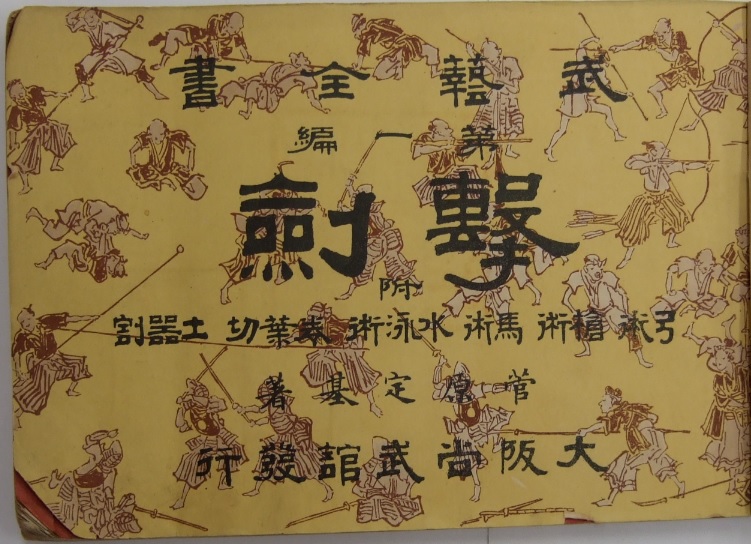 武藝全書
第一編
擊劍
附
弓術 槍術 馬術 水泳術 卷藁切 土器割
菅原定基著
大阪尚武館發行